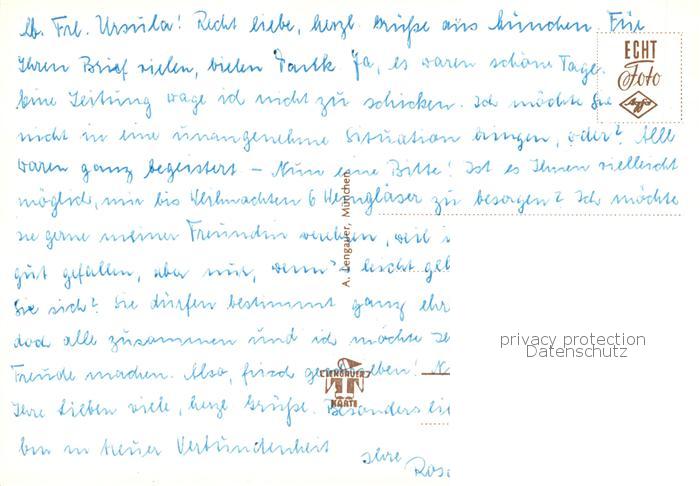 lb. Frl. Ursula! Recht liebe, herzl. Grüße aus München. Für
Ihren Brief vielen, vielen Dank. Ja, es waren schöne Tage.
Eine Zeitung wage ich nicht zu schicken. Ich möchte Sie
nicht in eine unangenehme Situation bringen, oder? Alle
waren ganz begeistert – Nun eine Bitte! Ist es Ihnen vielleicht
möglich, mir bis Weihnachten 6 Weingläser zu besorgen? Ich möchte
sie gerne meiner Freundin verehren, weil
gut gefallen, aber nur, wenn's leicht
Sie sich? Sie dürfen bestimmt ganz
doch alle zusammen und ich möchte
Freude machen. Also, frisch geschrieben!
Ihre Lieben viele, herzl. Grüße. Besonders
bin in treuer Verbundenheit
Ihre
ECHT
Foto
Agfa
A. Lengauer, München
LENGAUER
KARTE
privacy protection
Datenschutz